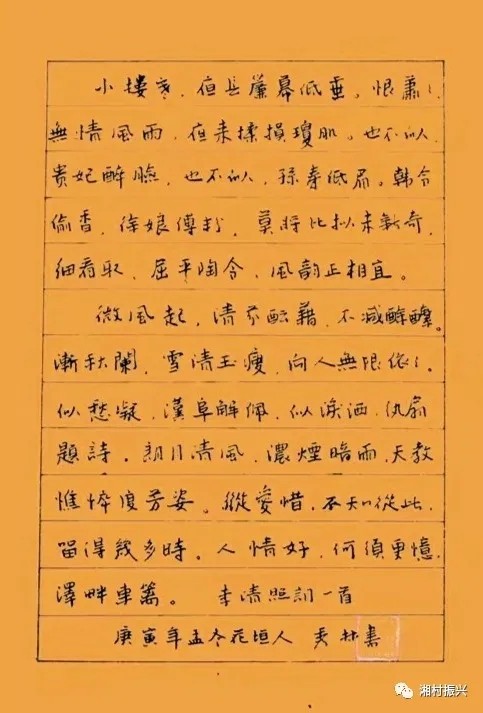 小楼寒，夜長簾幕低垂。恨蕭〻
無情風雨，夜来揉損瓊肌。也不似
貴妃醉臉，也不似，孫寿低眉。韓令
偷香，徐娘傅粉，莫將比拟未新奇，
细看取，屈平陶令，風韵正相宜。
微風起，清芬酝藉，不减酴醾。
漸秋闌，雪清玉瘦，向人無限依〻。
似愁凝，漢阜解佩，似淚洒，纨扇
題詩。朗月清風，濃煙暗雨，天教
憔悴度芳姿。縱愛惜，不知從此，
留得幾多時。人情好，何須更憶，
澤畔東籬。 李清照詞一首
庚寅年孟冬花垣人 林書
湘村振兴